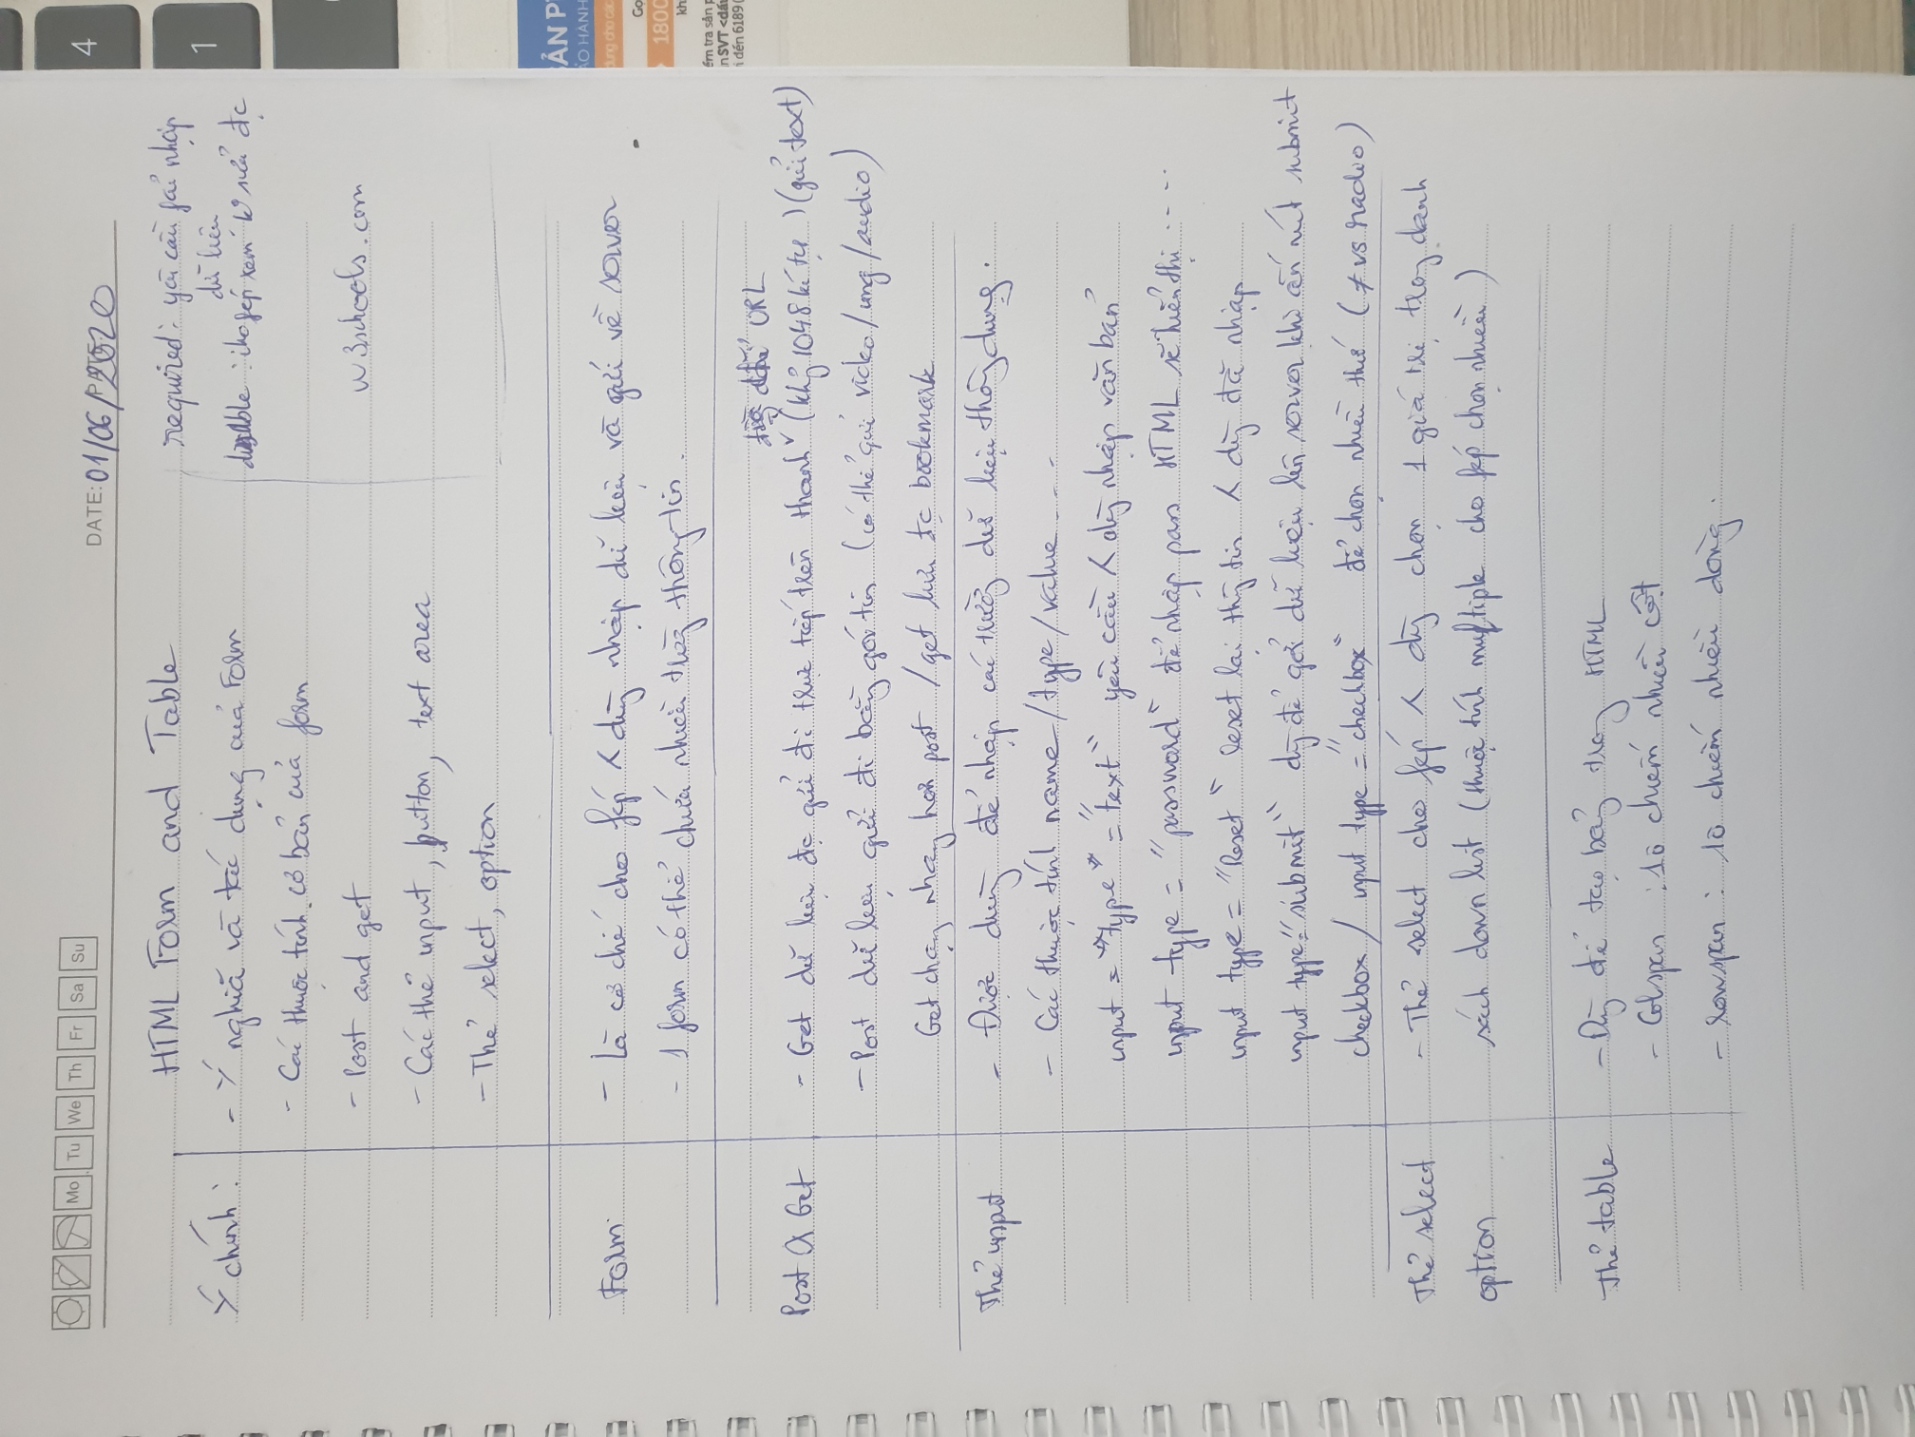 Mo Tu We Th Fr Sa Su
DATE: 01/06/2020
HTML Form and Table
required: yêu cầu fải nhập
dữ liệu
disable : cho fép xem k sửa đc
w3schools.com
Ý chính :
- Ý nghĩa và tác dụng của Form
- Các thuộc tính cơ bản của form
- Post and get
- Các thẻ input, button, text area
- Thẻ select, option
Form
- Là cơ chế cho fép dùng nhập dữ liệu và gửi về server
- 1 form có thể chứa nhiều trường thông tin.
Post & Get
URL
- Get dữ liệu đc gửi đi trực tiếp trên thanh (khoảng 1048 kí tự) (gửi text)
- Post dữ liệu gửi đi bằng gói tin (có thể gửi video/img/audio)
Get chạy nhanh hơn post / get lưu đc bookmark
Thẻ input
- Được dùng để nhập các trường dữ liệu thông dụng.
- Các thuộc tính name/type/value...
input = "type" = "text" yêu cầu dùng nhập văn bản
input type = "password" để nhập pass HTML sẽ hiển thị .....
input type = "Reset" reset lại thông tin dùng đã nhập
input type="submit" dùng để gởi dữ liệu lên server khi ấn nút submit
checkbox / input type = "checkbox" để chọn nhiều thứ (≠ vs radio)
Thẻ select
option
- Thẻ select cho fép dùng chọn 1 giá trị trong danh
sách down list (thuộc tính multiple cho fép chọn nhiều)
Thẻ table
- Dùng để tạo bảng trong HTML
- Colspan : 1 ô chiếm nhiều cột
- rowspan : 1 ô chiếm nhiều dòng.
4
1
ẢN P
ẢO HÀNH
Gọ
1800
kh
ểm tra sản p
n SVT <dấu
i đến 6189 (